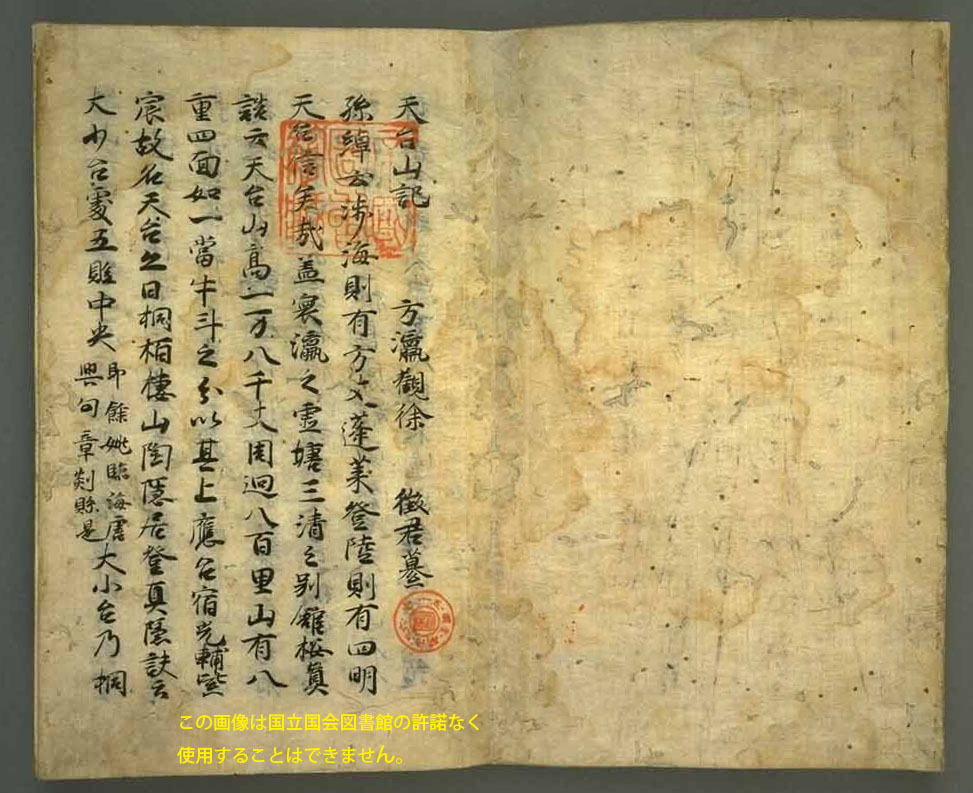 天台山記 方瀛觀徐 徵君墓
孫綽云渉海則有方丈蓬萊登陸則有四明
天台信矣哉蓋寰瀛之靈墟三清之別舘按真
誥云天台山高一万八千丈周迴八百里山有八
重四面如一當牛斗之分以其上應台宿光輔紫
宸故名天台之曰桐栢棲山陶隱居登真隱訣云
大小台處五縣中央即餘姚臨海唐興句章剡縣是大小台乃桐
この画像は国立国会図書館の許諾なく
使用することはできません。